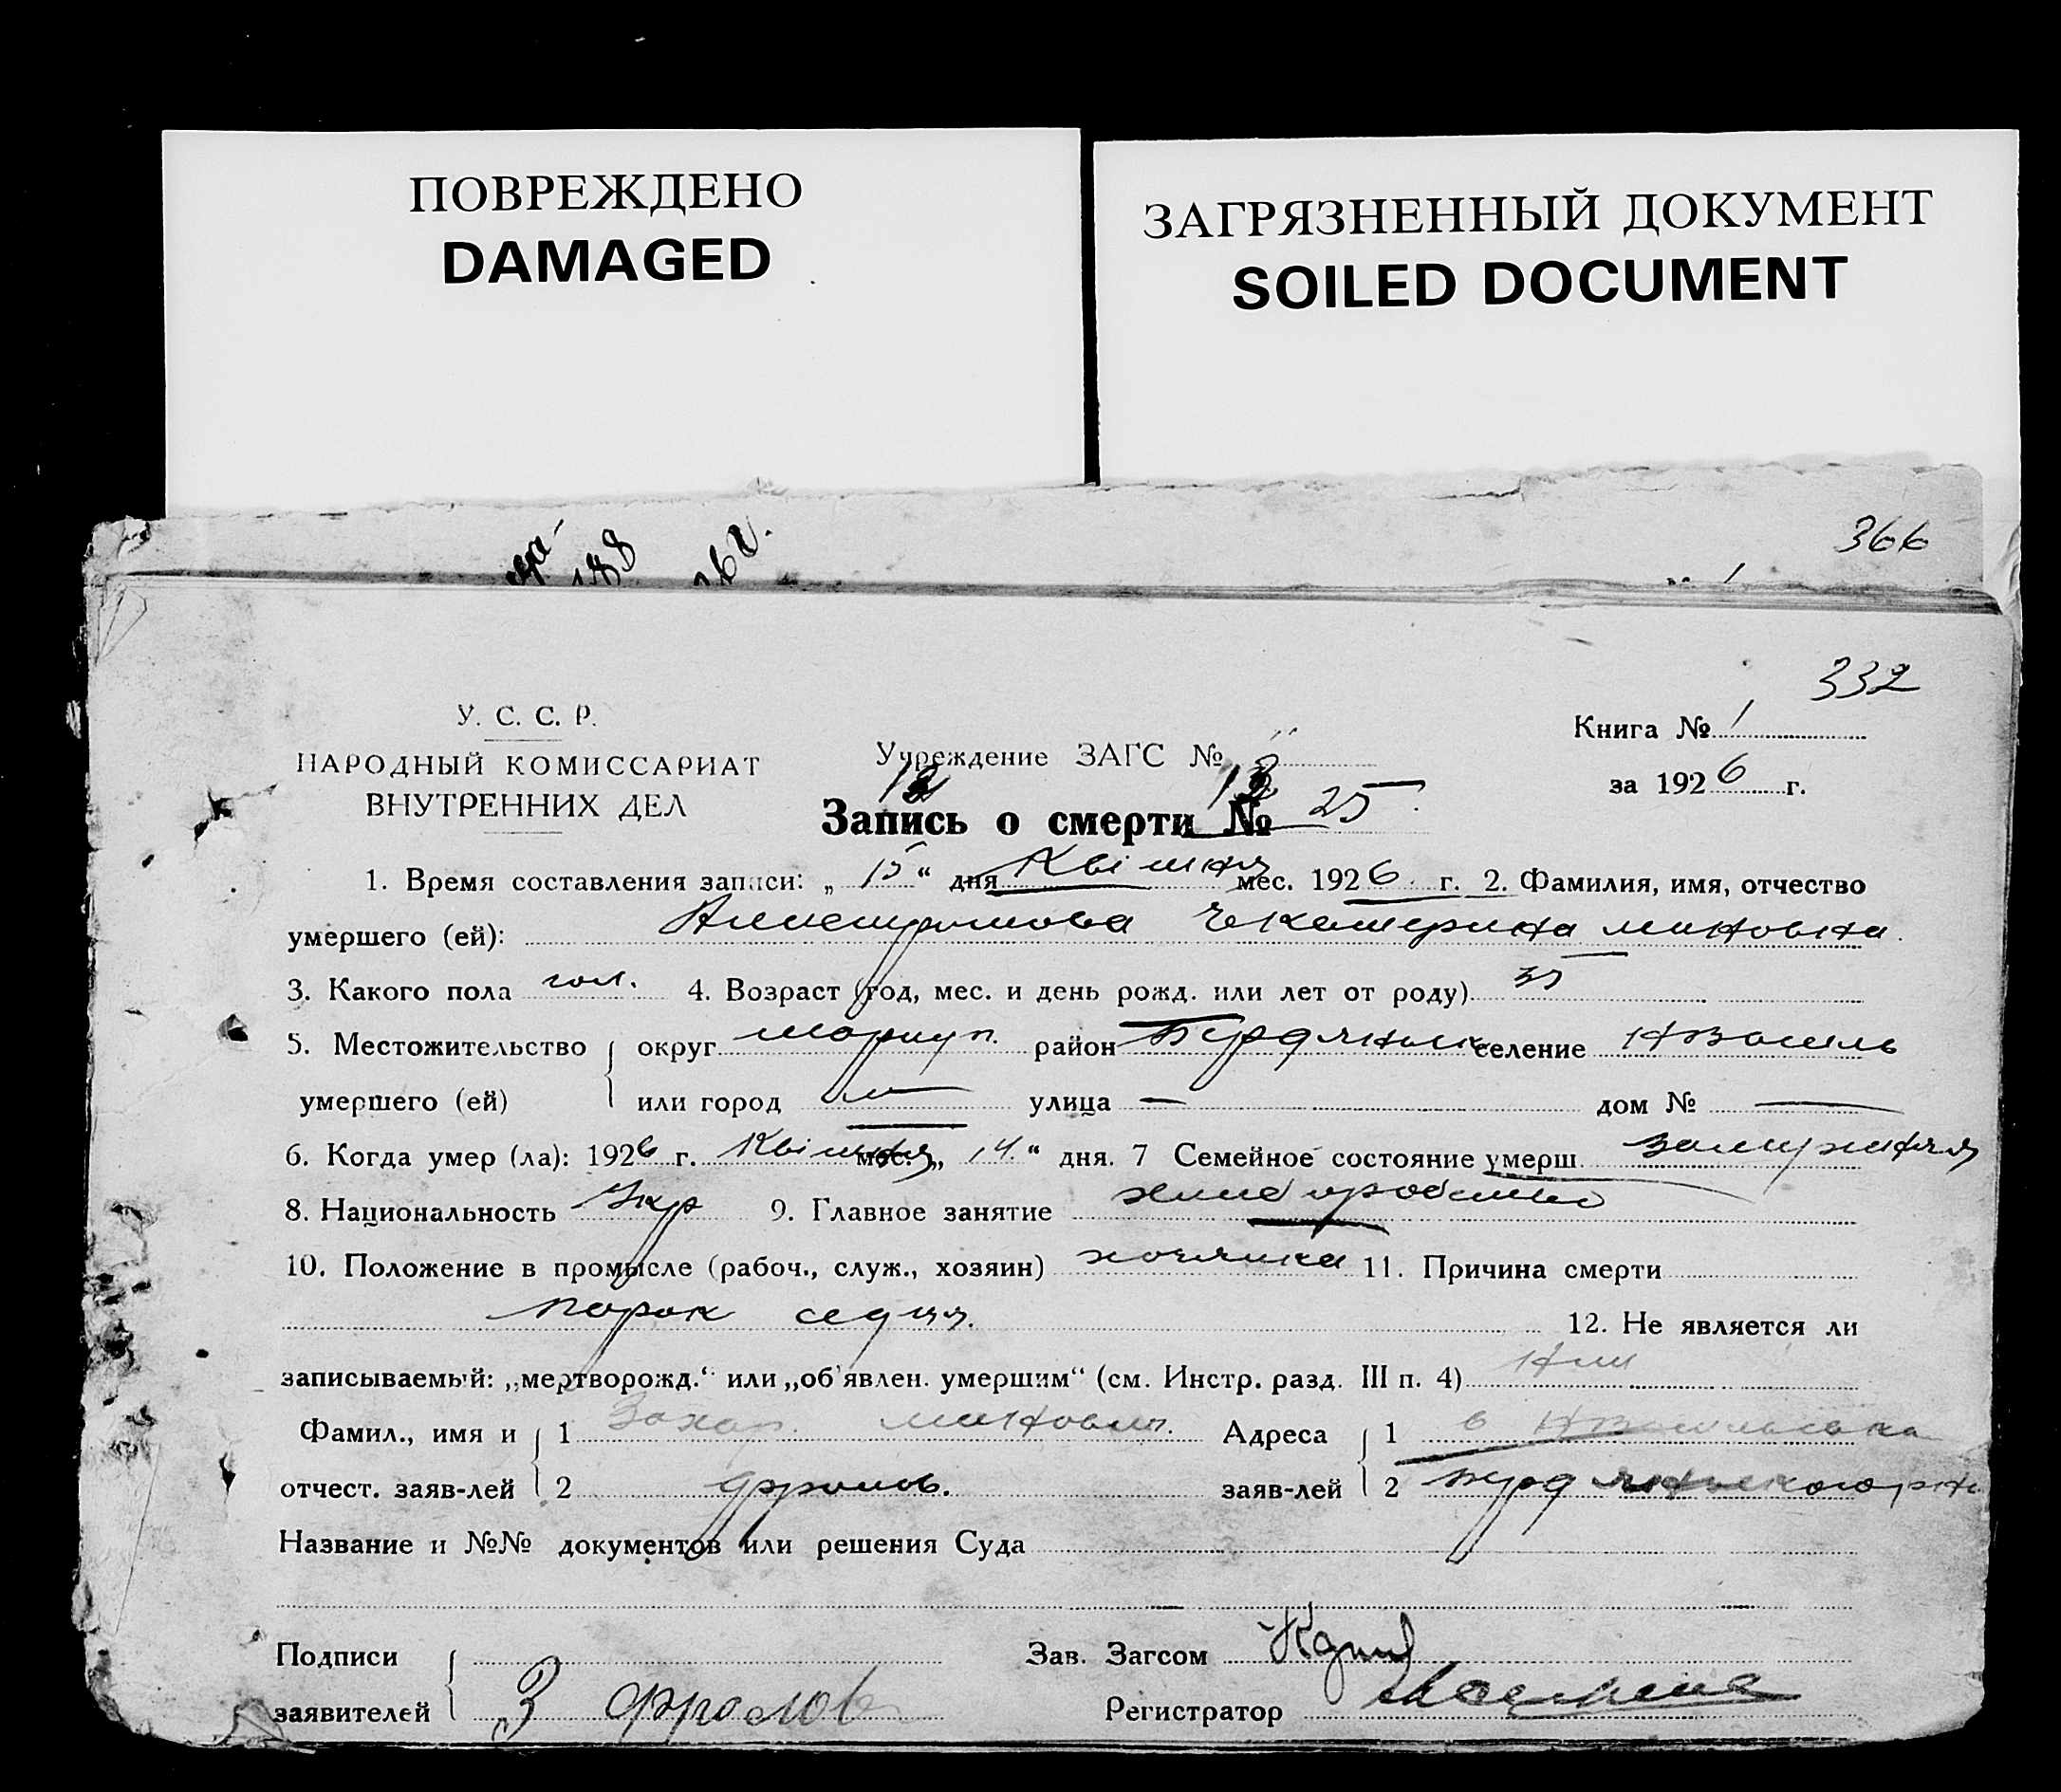 ПОВРЕЖДЕНО
DAMAGED
ЗАГРЯЗНЕННЫЙ ДОКУМЕНТ
SOILED DOCUMENT
366
332
У. С. С. Р.
НАРОДНЫЙ КОМИССАРИАТ
ВНУТРЕННИХ ДЕЛ
Учреждение ЗАГС №
Книга № 1
за 1926 г.
Запись о смерти № 25
1. Время составления записи: „15“ дня Квітня мес. 1926 г. 2. Фамилия, имя, отчество
умершего (ей): Екатерина Миновна
3. Какого пола 4. Возраст (год, мес. и день рожд. или лет от роду) 35
5. Местожительство округ Мариуп. район Бердянськ селение
умершего (ей) или город — улица — дом № —
6. Когда умер (ла): 1926 г. Квітня мес. „14“ дня. 7 Семейное состояние умерш. замужняя
8. Национальность Укр 9. Главное занятие хлеборобство
10. Положение в промысле (рабоч., служ., хозяин) хозяйка 11. Причина смерти
порок сердця.
12. Не является ли
записываемый: „мертворожд.“ или „об'явлен. умершим“ (см. Инстр. разд. III п. 4) ни
Фамил., имя и 1 Захар. Минович. Адреса 1
отчест. заяв-лей 2 Фролов. заяв-лей 2
Название и №№ документов или решения Суда
Подписи
заявителей З Фролов
Зав. Загсом
Регистратор